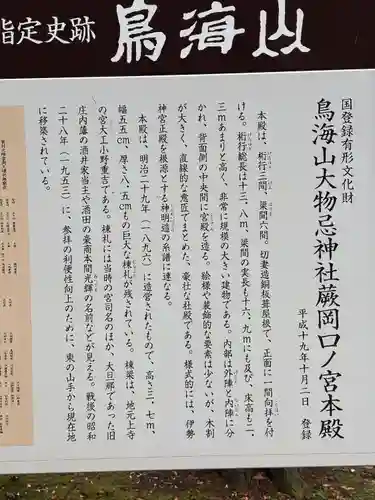 指定史跡
鳥海山
国登録有形文化財
鳥海山大物忌神社蕨岡口ノ宮本殿
平成十九年十月二日　登録
本殿は、桁行三間、梁間六間。切妻造銅板葺屋根で、正面に一間向拝を付
ける。桁行総長は十三、八m、梁間の実長も十六、九mにも及び、床高も二、
三mあまりと高く、非常に規模の大きい建物である。内部は外陣と内陣に分
かれ、背面側の中央間に宮殿を造る。絵様や装飾的な要素は少ないが、木割
が大きく、直線的な意匠でまとめた、豪壮な社殿である。様式的には、伊勢
神宮正殿を根源とする神明造の系譜に連なる。
本殿は、明治二十九年（一八九六）に造営されたもので、高さ三、七m、
幅五五cm、厚さ八、五cmもの巨大な棟札が残されている。棟梁は、地元上寺
の宮大工小野重吉である。棟札には当時の宮司名のほか、大旦那であった旧
庄内藩の酒井家当主や酒田の豪商本間光輝の名前などが見える。戦後の昭和
二十八年（一九五三）に、参拝の利便性向上のために、東の山手から現在地
に移築されている。